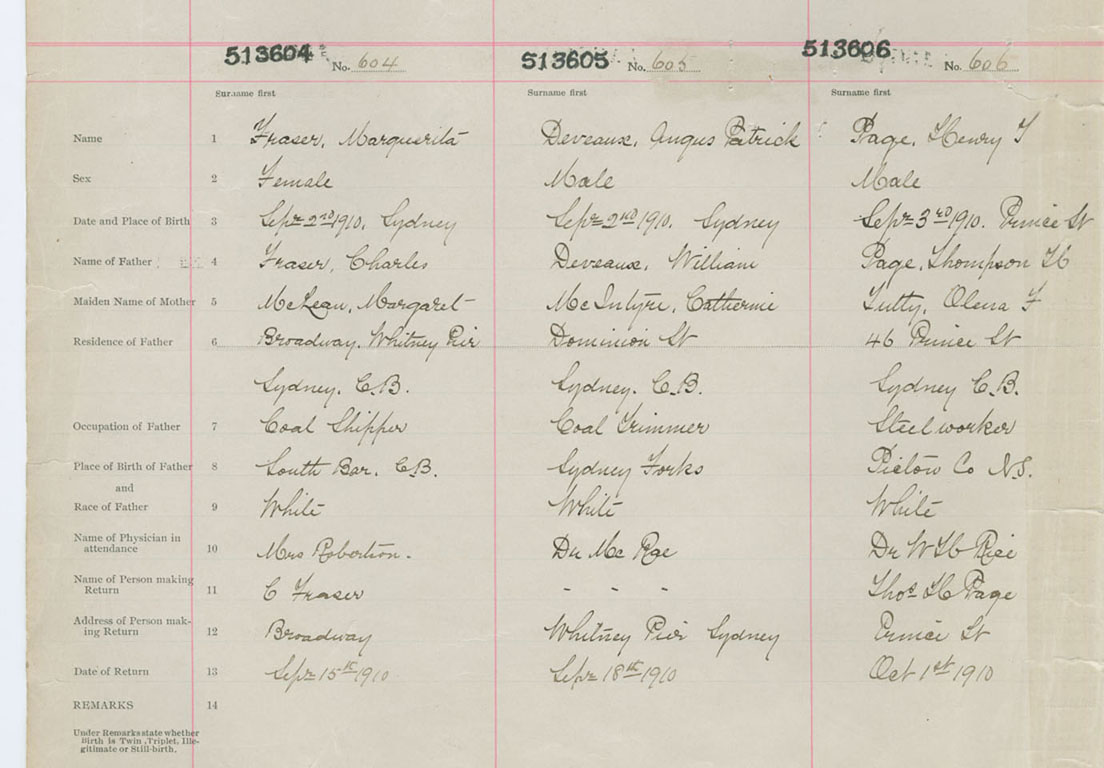 513604 No. 604 513605 No. 605 513606 No. 606
Surname first Surname first Surname first
Name 1 Fraser, Marguerita Deveaux, Angus Patrick Page, Henry T
Sex 2 Female Male Male
Date and Place of Birth 3 Sept 2nd 1910, Sydney Sept 2nd 1910. Sydney Sept 3rd 1910. Prince St
Name of Father 4 Fraser, Charles Deveaux, William Page, Thompson H
Maiden Name of Mother 5 McLean, Margaret McIntyre, Catherine Tutty, Olena F
Residence of Father 6 Broadway, Whitney Pier Dominion St 46 Prince St
Sydney, C.B. Sydney. C.B. Sydney C.B.
Occupation of Father 7 Coal Shipper Coal Trimmer Steel worker
Place of Birth of Father 8 South Bar, C.B. Sydney Forks Pictou Co N.S.
and
Race of Father 9 White White White
Name of Physician in
attendance 10 Mrs Robertson. Dr McRae Dr W H Rice
Name of Person making
Return 11 C Fraser - - - Thos H Page
Address of Person mak-
ing Return 12 Broadway Whitney Pier Sydney Prince St
Date of Return 13 Sept 15th 1910 Sept 18th 1910 Oct 1st 1910
REMARKS 14
Under Remarks state whether
Birth is Twin, Triplet, Ille-
gitimate or Still-birth.